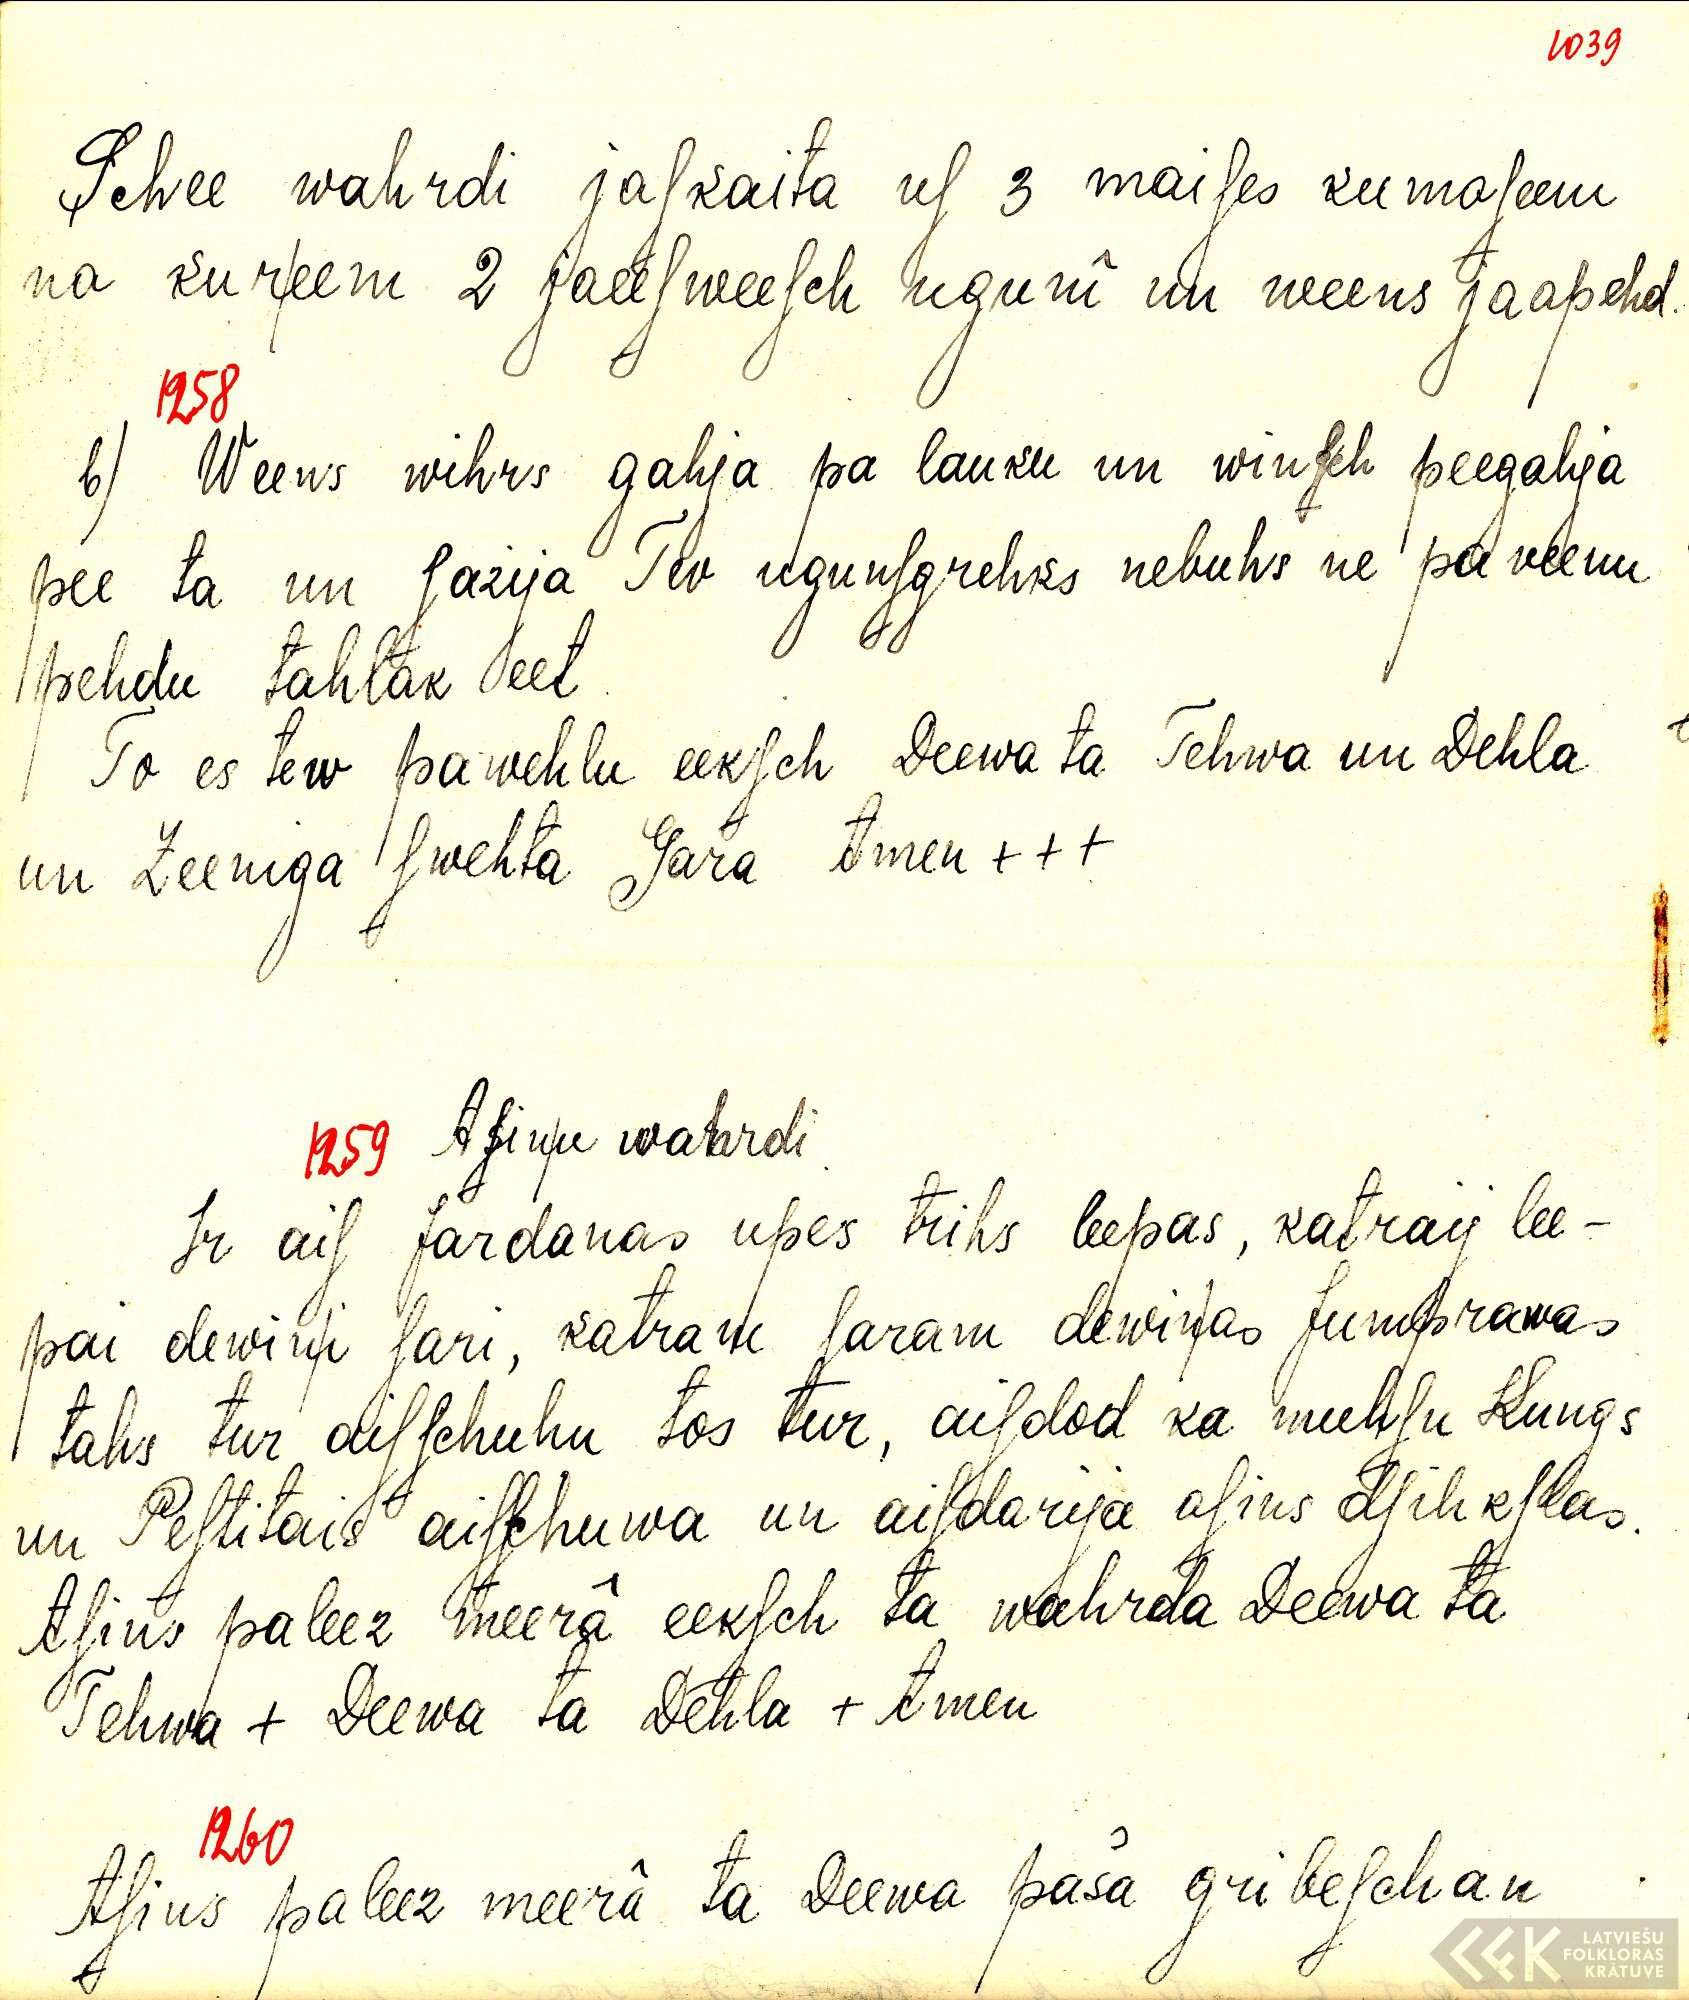 1039
Schee wahrdi jaſkaita uſ 3 maiſes kumoſeem
no kuŗeem 2 jaeeſweeſch ugunî un weens jaapehd.
1258
b) Weens wihrs gahja pa lauku un winſch peegahja
pee ta un ſazija Tew ugunſgrehks nebuhs ne pa veenu
pehdu tahlak eet
To es tew pawehlu eekſch Deewa ta Tehwa un Dehla
un Zeeniga ſwehta Gara Amen + + +
1259 Aſiņu wahrdi
Ir aiſ Jardanas upes trihs leepas, katraij lee-
pai dewiņi ſari, katram ſaram dewiņas Jumprawas
tahs tur aiſſchuhu tos tur, aiſdod ka muhſu Kungs
un Peſtitais aiſſchuwa un aiſdarija aſins dſihkſlas.
Aſins paleez meerâ eekſch ta wahrda Deewa ta
Tehwa + Deewa ta Dehla + Amen
1260
Aſins paleez meerâ ta Deewa paša gribeſchan
LATVIEŠU
FOLKLORAS
KRĀTUVE